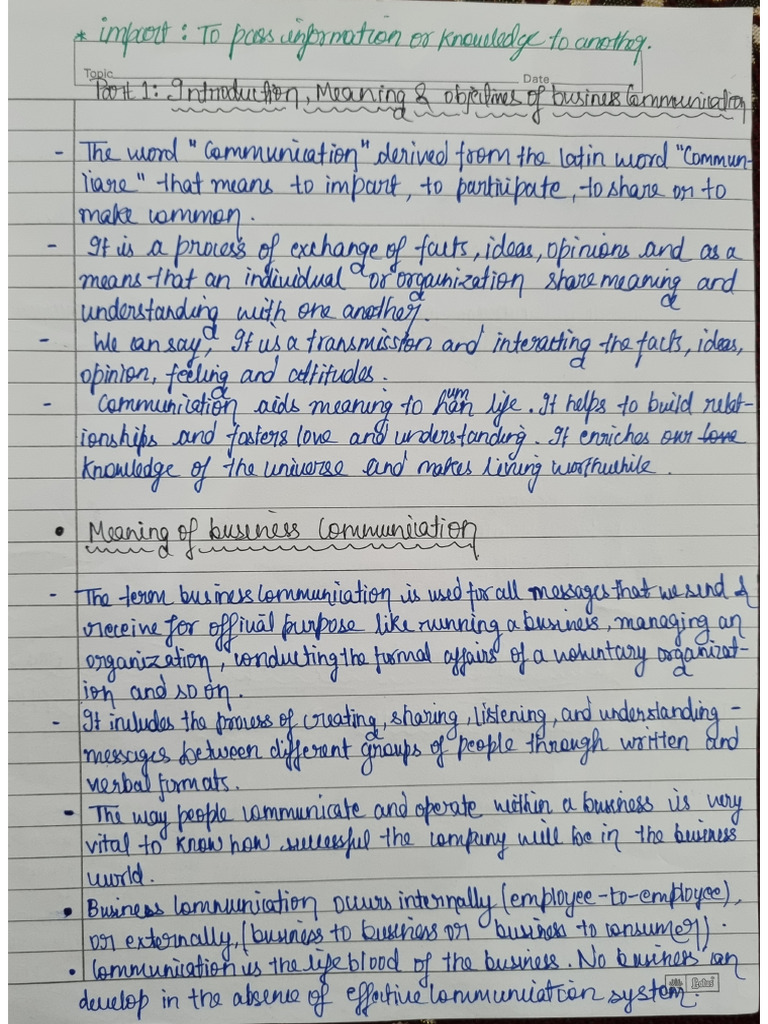 * impart : To pass information or knowledge to another.
Topic
Date
Part 1: Introduction, Meaning & objectives of business Communication
- The word "Communication" derived from the latin word "Commun-
liare" that means to impart, to participate, to share or to
make common.
- It is a process of exchange of facts, ideas, opinions and as a
means that an individual or organization share meaning and
understanding with one another.
- We can say, It is a transmission and interacting the facts, ideas,
opinion, feeling and attitudes.
- Communication aids meaning to human life. It helps to build relat-
ionships and fosters love and understanding. It enriches our love
knowledge of the universe and makes living worthwhile.
• Meaning of business Communication
- The term business communication is used for all messages that we send &
receive for official purpose like running a business, managing an
organization, conducting the formal affairs of a voluntary organizat-
ion and so on.
- It includes the process of creating, sharing, listening, and understanding -
messages between different groups of people through written and
verbal formats.
• The way people communicate and operate within a business is very
vital to know how successful the company will be in the business
world.
• Business Communication occurs internally (employee-to-employee),
or externally, (business to business or business to consumer).
• Communication is the life blood of the business. No business can
develop in the absence of effective communication system.